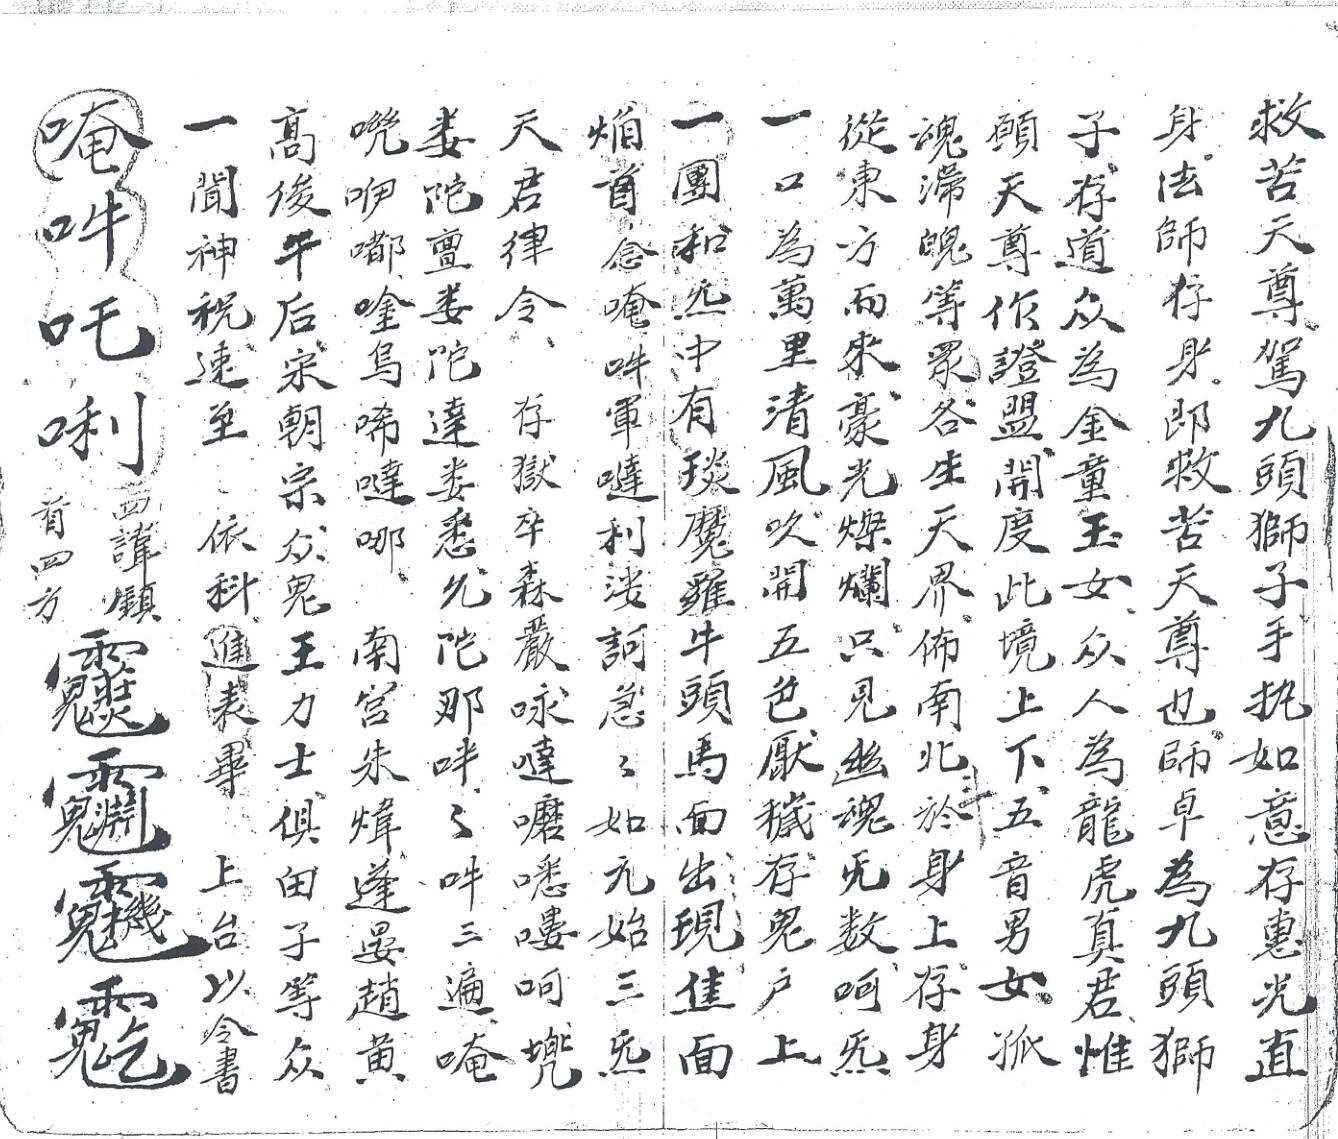 救苦天尊駕九頭獅子手执如意存惠光直
身法師存身即救苦天尊也師卓為九頭獅
子存道众為金童玉女众人為龍虎真君惟
願天尊作證盟開度此境上下五音男女孤
魂滯魄等衆各生天界佈南北斗於身上存身
從東方而來豪光燦爛只見幽魂无数呵炁
一口為萬里清風吹開五色厭穢存鬼户上
一團和炁中有琰魔羅牛頭馬面出現隹面
焰首念唵吽軍噠利娑訶急〻如元始三炁
天君律令 存獄卒森嚴咏噠嚰㗭嘍呵㘈
娄陀亶娄陀達娄悉么陀那吽〻吽三遍唵
㖠咿嘟㖫烏唏噠哪 南宫朱煒蓬晏趙黄
髙俊平后宋朝宗众鬼王力士俱由子等众
一聞神祝速至 依科進表畢 上台以令書
唵吽吒唎 四諱鎮
首四方